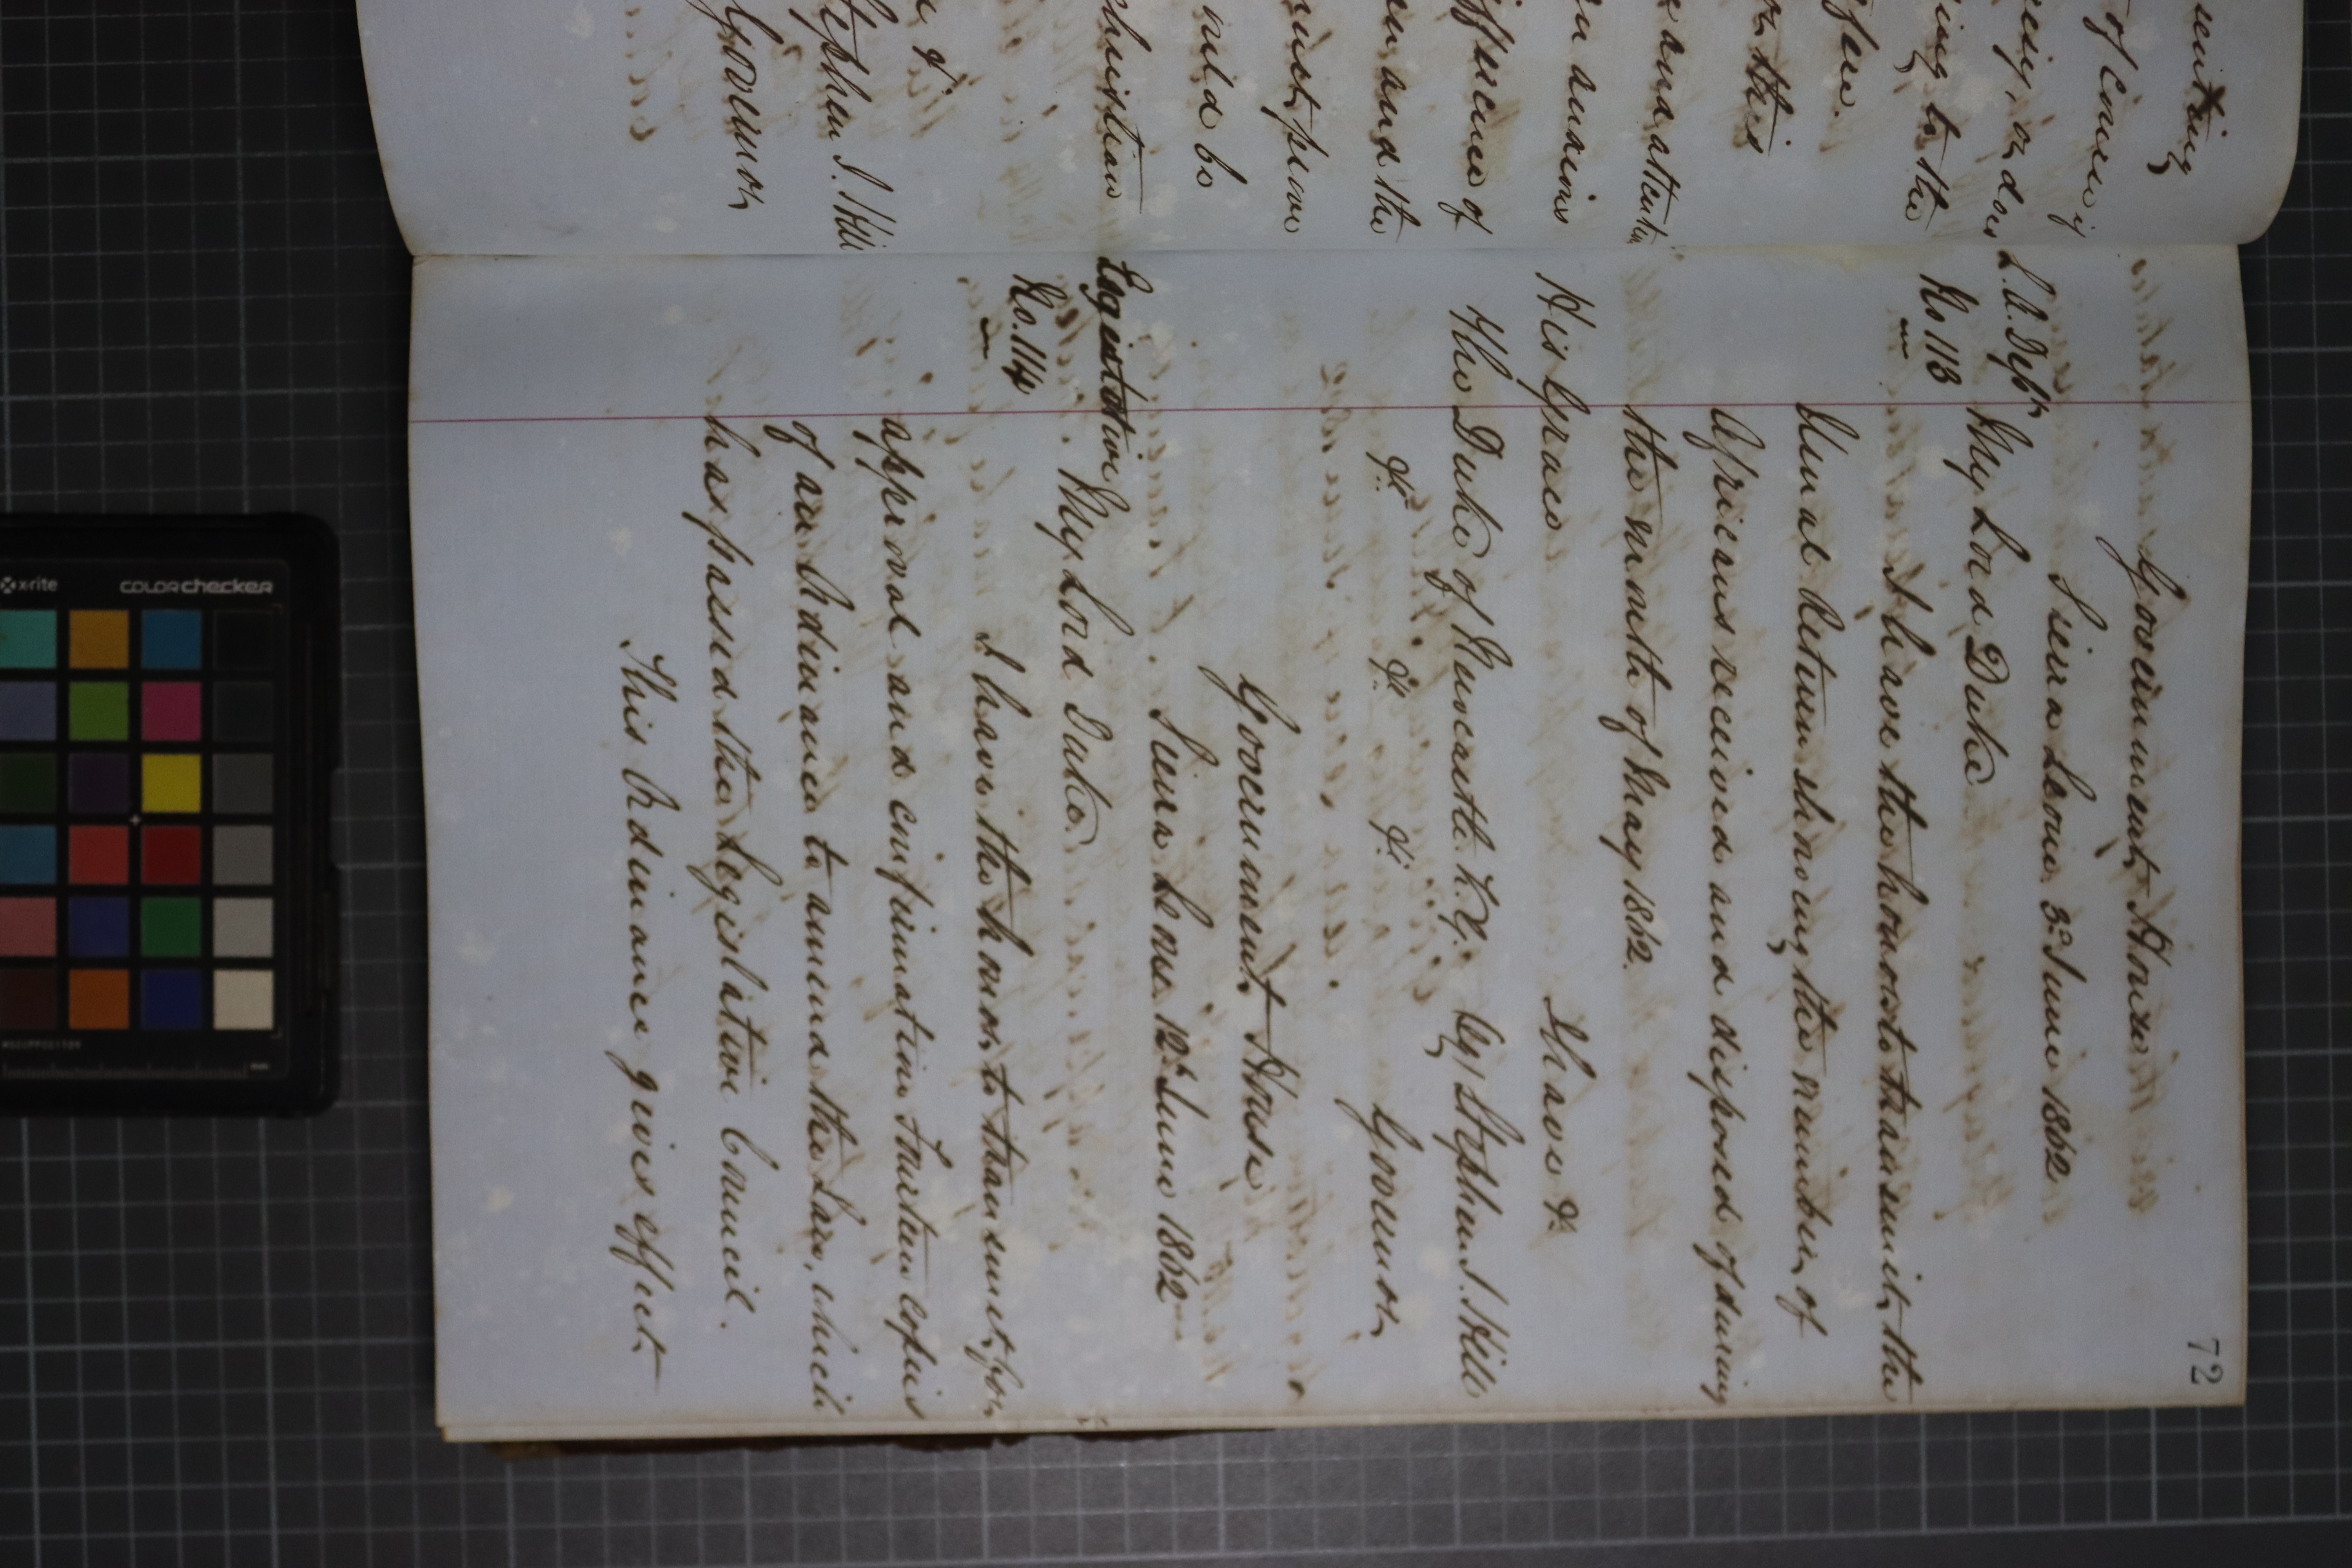 72
Government House
Sierra Leone 3d June 1862
L. A. Dept
No 113
My Lord Duke
I have the honor to transmit the
Usual Return showing the number of
Africans received and disposed of during
the month of May 1862.
I have &c
His Grace
The Duke of Newcastle K.G. (Sg) Stephen J. Hill
&c &c &c Governor
Government House
Sierra Leone 12th June 1862
Legislative
No. 114
My Lord Duke
I have the honor to transmit for
approval and confirmation Fourteen copies
of an Ordinance to amend the Law, which
has passed the Legislative Council.
This Ordinance gives effect
of Council of
or does
to the
the
difference of
and the
be
Stephen J. Hill
Governor
x-rite
colorchecker